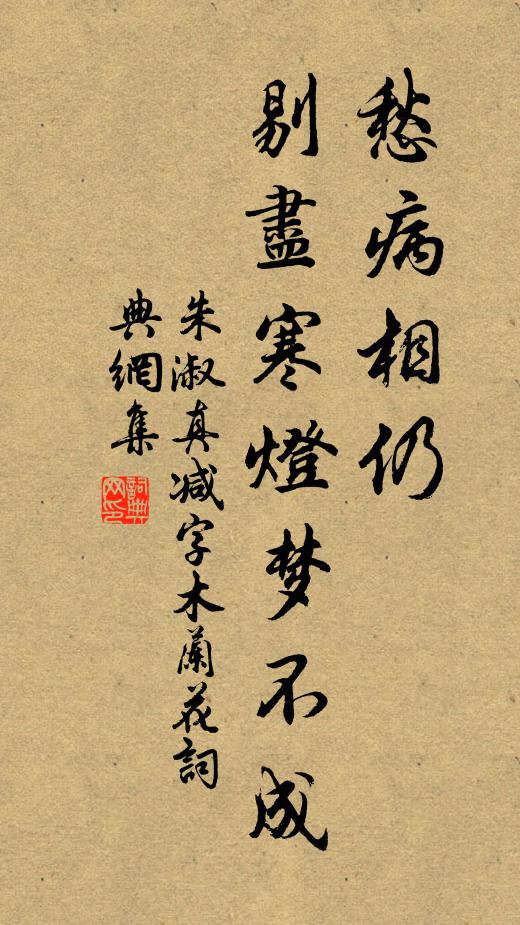 愁病相仍
剔盡寒燈梦不成
朱淑真減字木蘭花詞
典網集
詞典网印